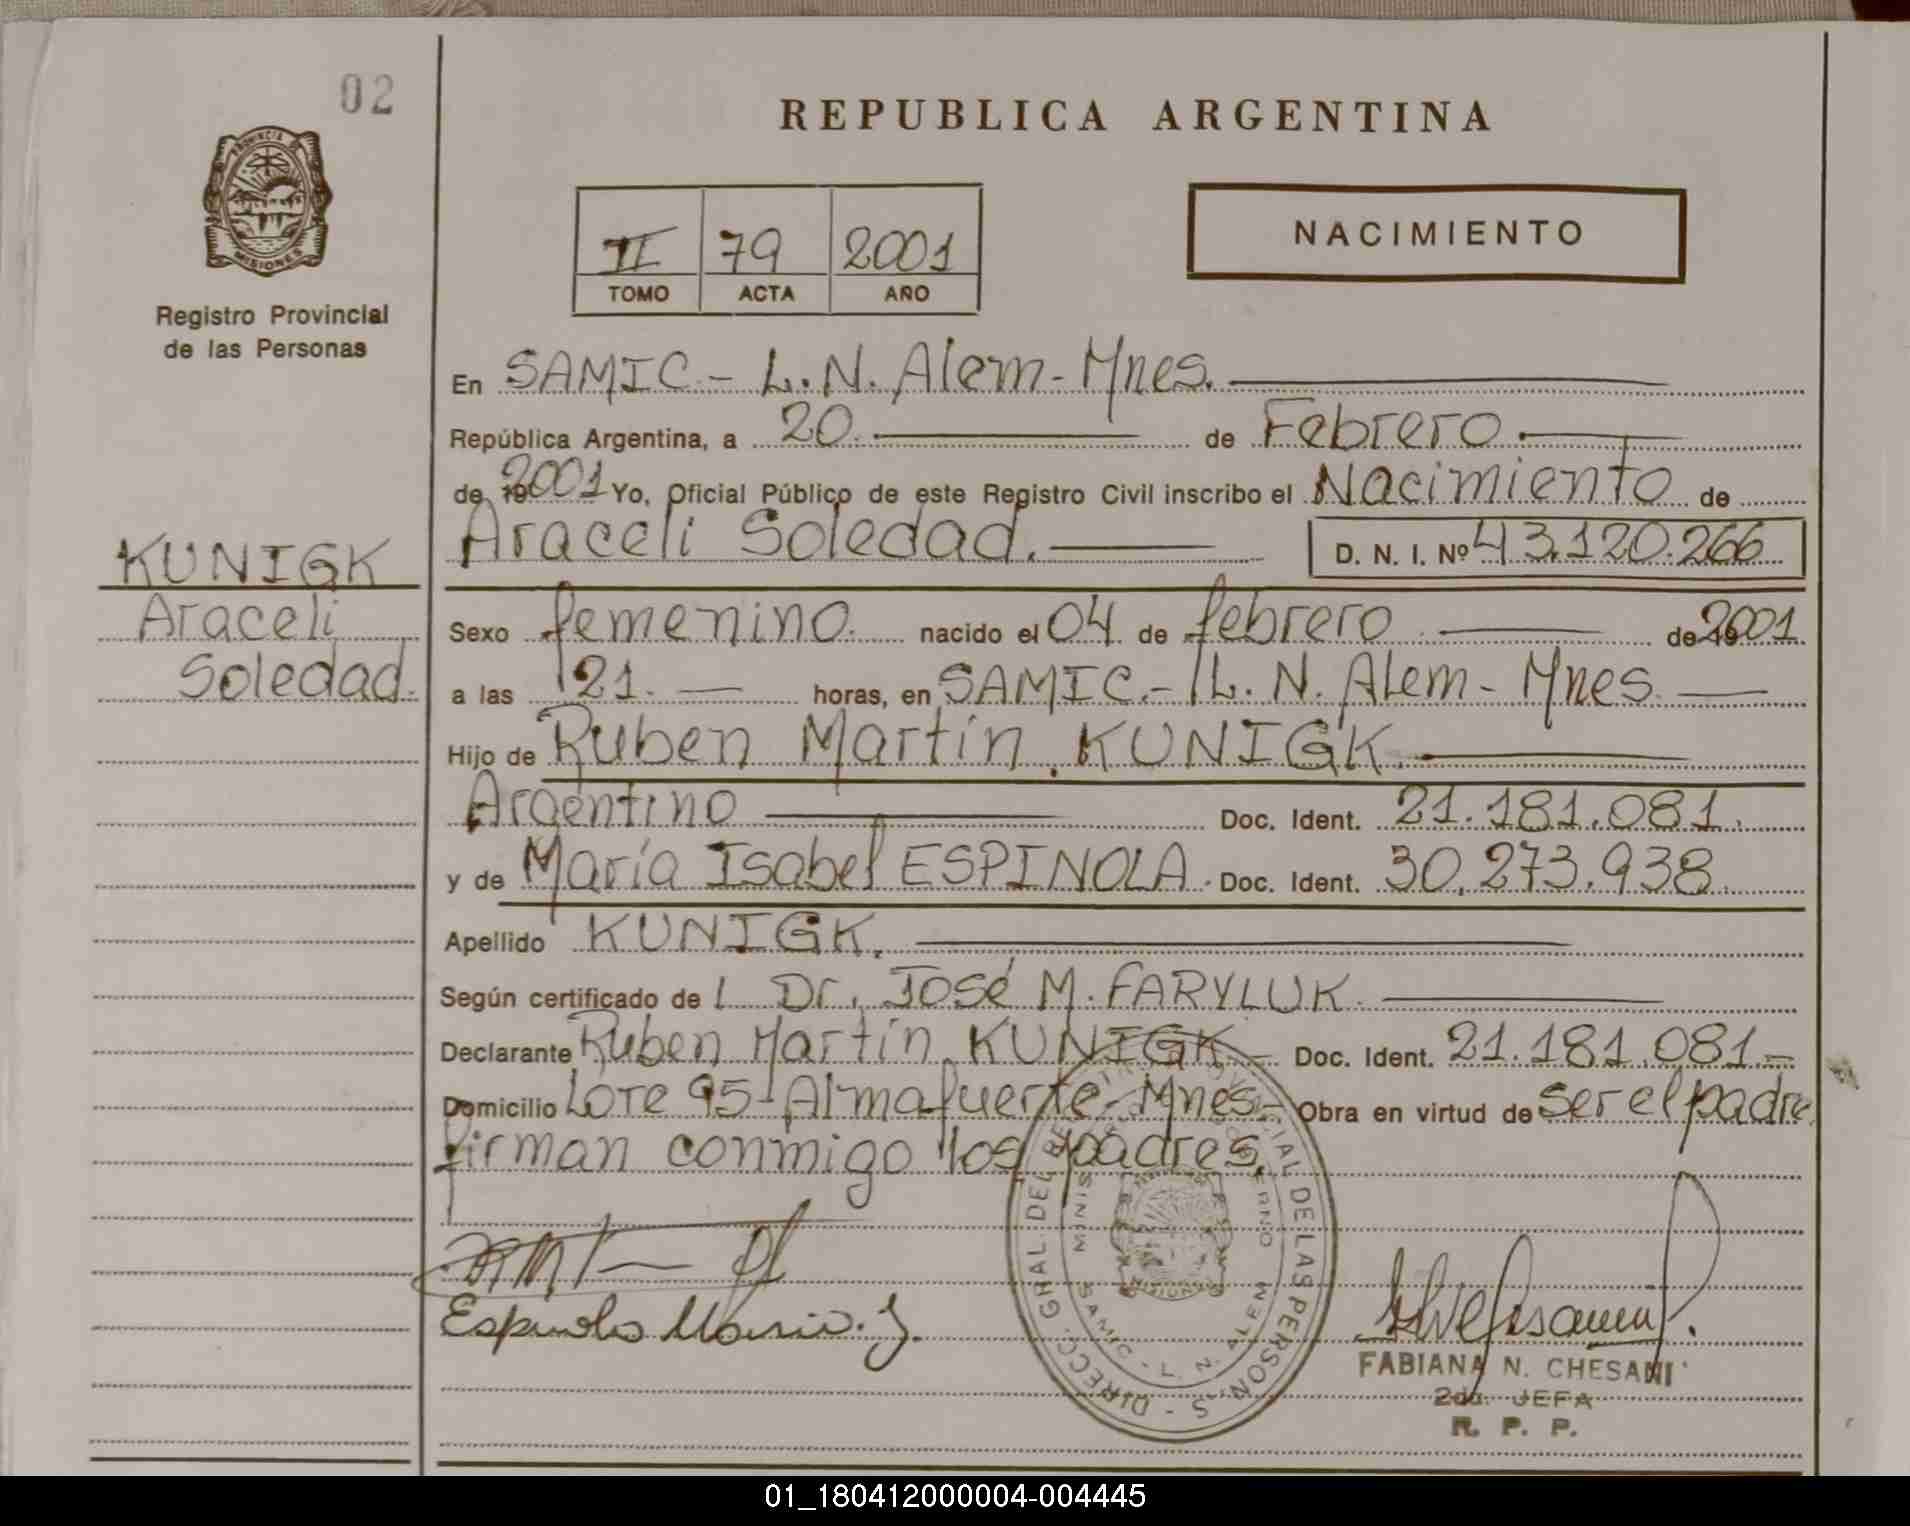 02
REPUBLICA ARGENTINA
PROVINCIA
MISIONES
Registro Provincial
de las Personas
II 79 2001
TOMO ACTA AÑO
NACIMIENTO
En SAMIC.- L. N. Alem - Mnes.
República Argentina, a 20. de Febrero
de 19 2001 Yo, Oficial Público de este Registro Civil inscribo el Nacimiento de
Araceli Soledad. D. N. I. Nº 43.120.266
KUNIGK
Araceli
Soledad.
Sexo femenino. nacido el 04 de febrero de 19 2001
a las 21. horas, en SAMIC.- L. N. Alem - Mnes.
Hijo de Ruben Martín KUNIGK.
Argentino Doc. Ident. 21.181.081.
y de María Isabel ESPINOLA. Doc. Ident. 30.273.938
Apellido KUNIGK.
Según certificado de l Dr. José M. FARYLUK.
Declarante Ruben Martín KUNIGK Doc. Ident. 21.181.081.-
Domicilio Lote 95 - Almafuerte - Mnes.- Obra en virtud de ser el padre,
firman conmigo los padres.
Espinola Maria. I.
DIRECC. GRAL. DEL REGISTRO PROVINCIAL DE LAS PERSONAS
SAMIC - L. N. ALEM
FABIANA N. CHESANI
2da. JEFA
R. P. P.
01_180412000004-004445